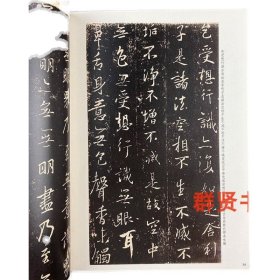 色受想行識亦復如是舍利
子是諸法空相不生不滅不
垢不淨不增不減是故空中
無色無受想行識無眼耳
鼻舌身意無色聲香味觸
明無無明盡乃至
群贤书